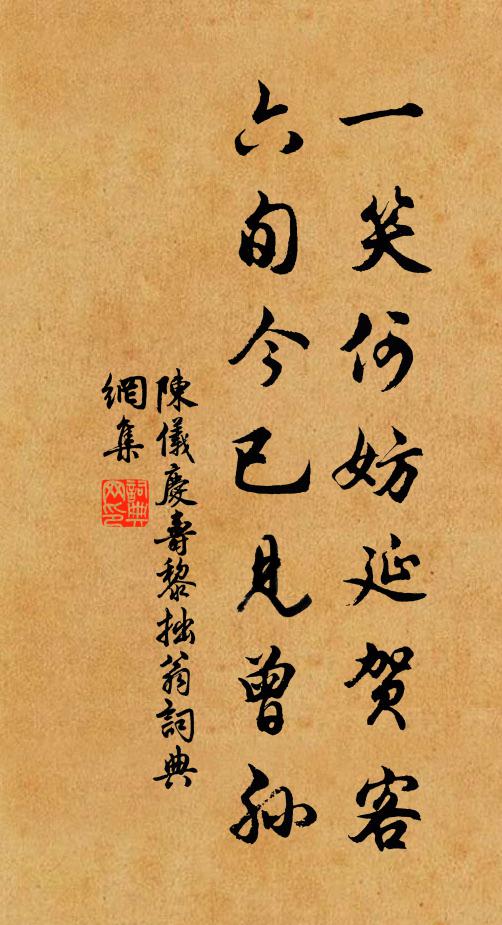 一笑何妨延贺客
六旬今已見曾孙
陳儀慶壽黎拙翁詞典
網集
詞典
网印